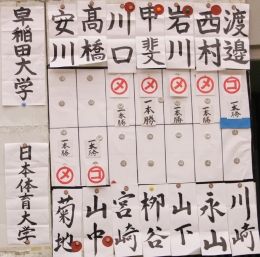 渡邊
西村
岩川
甲斐
川口
髙橋
安川
早稲田大学
コ
メ
メ
メ
メ
一本勝
一本勝
一本勝
一本勝
一本勝
コ
メ
川崎
永山
山下
柳谷
宮崎
山中
菊地
日本体育大学